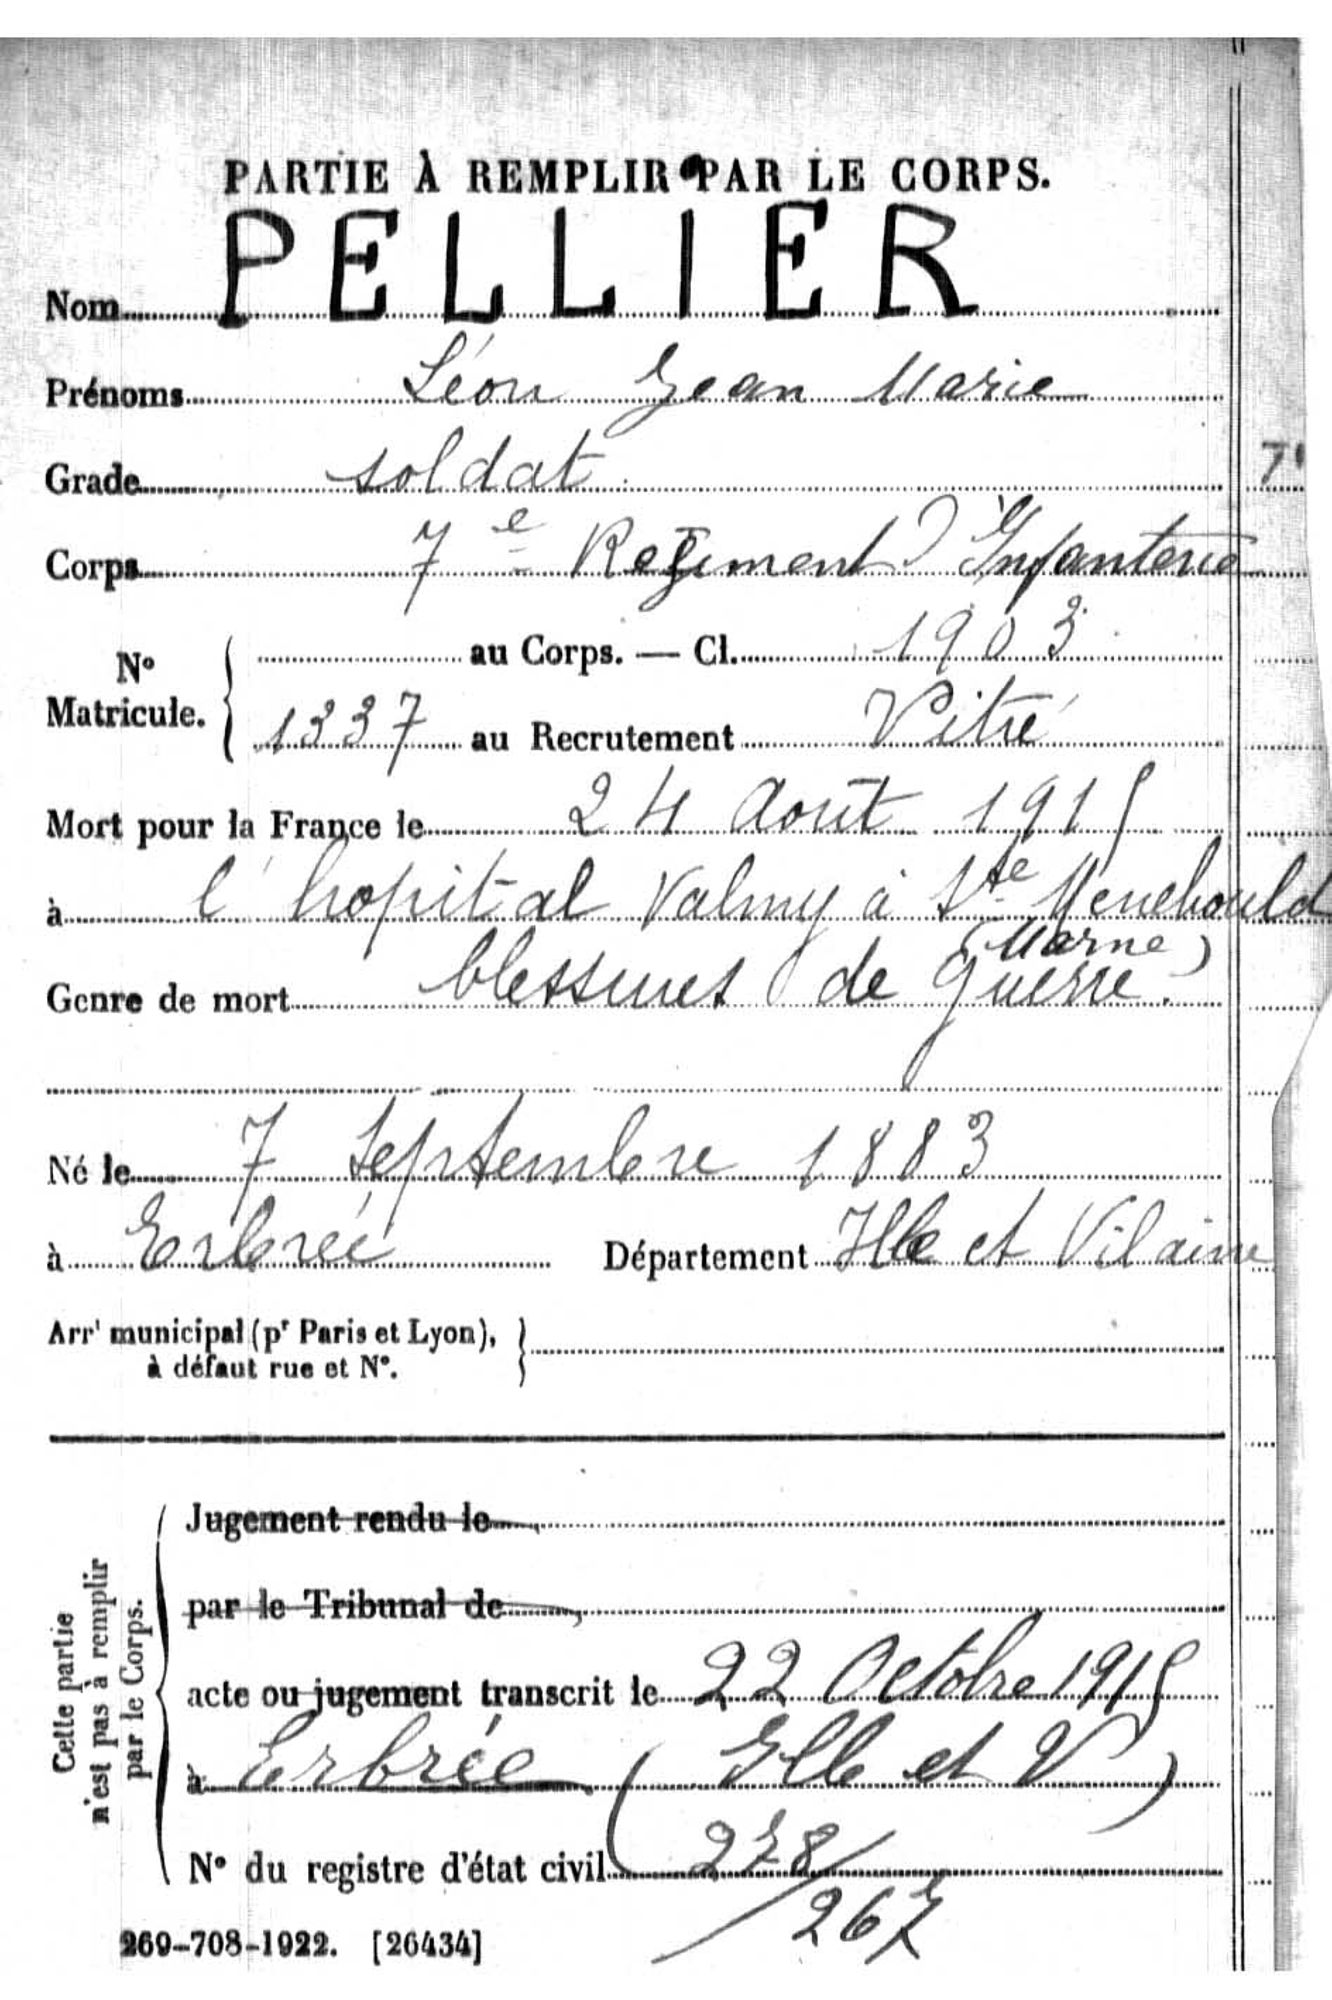 PARTIE À REMPLIR PAR LE CORPS.
Nom PELLIER
Prénoms Léon Jean Marie
Grade soldat
Corps 7e Régiment d'Infanterie
N° Matricule. { au Corps. — Cl. 1903
1337 au Recrutement Vitré
Mort pour la France le 24 Août 1915
à l'hopital Valmy à Ste Menehould
(Marne)
Genre de mort blessures de guerre.
Né le 7 Septembre 1883
à Erbrée Département Ille et Vilaine
Arrt municipal (pr Paris et Lyon), }
à défaut rue et N°.
Cette partie
n'est pas à remplir
par le Corps.
Jugement rendu le
par le Tribunal de
acte ou jugement transcrit le 22 Octobre 1915
à Erbrée (Ille et V)
N° du registre d'état civil 278/
267
269-708-1922. [26434]